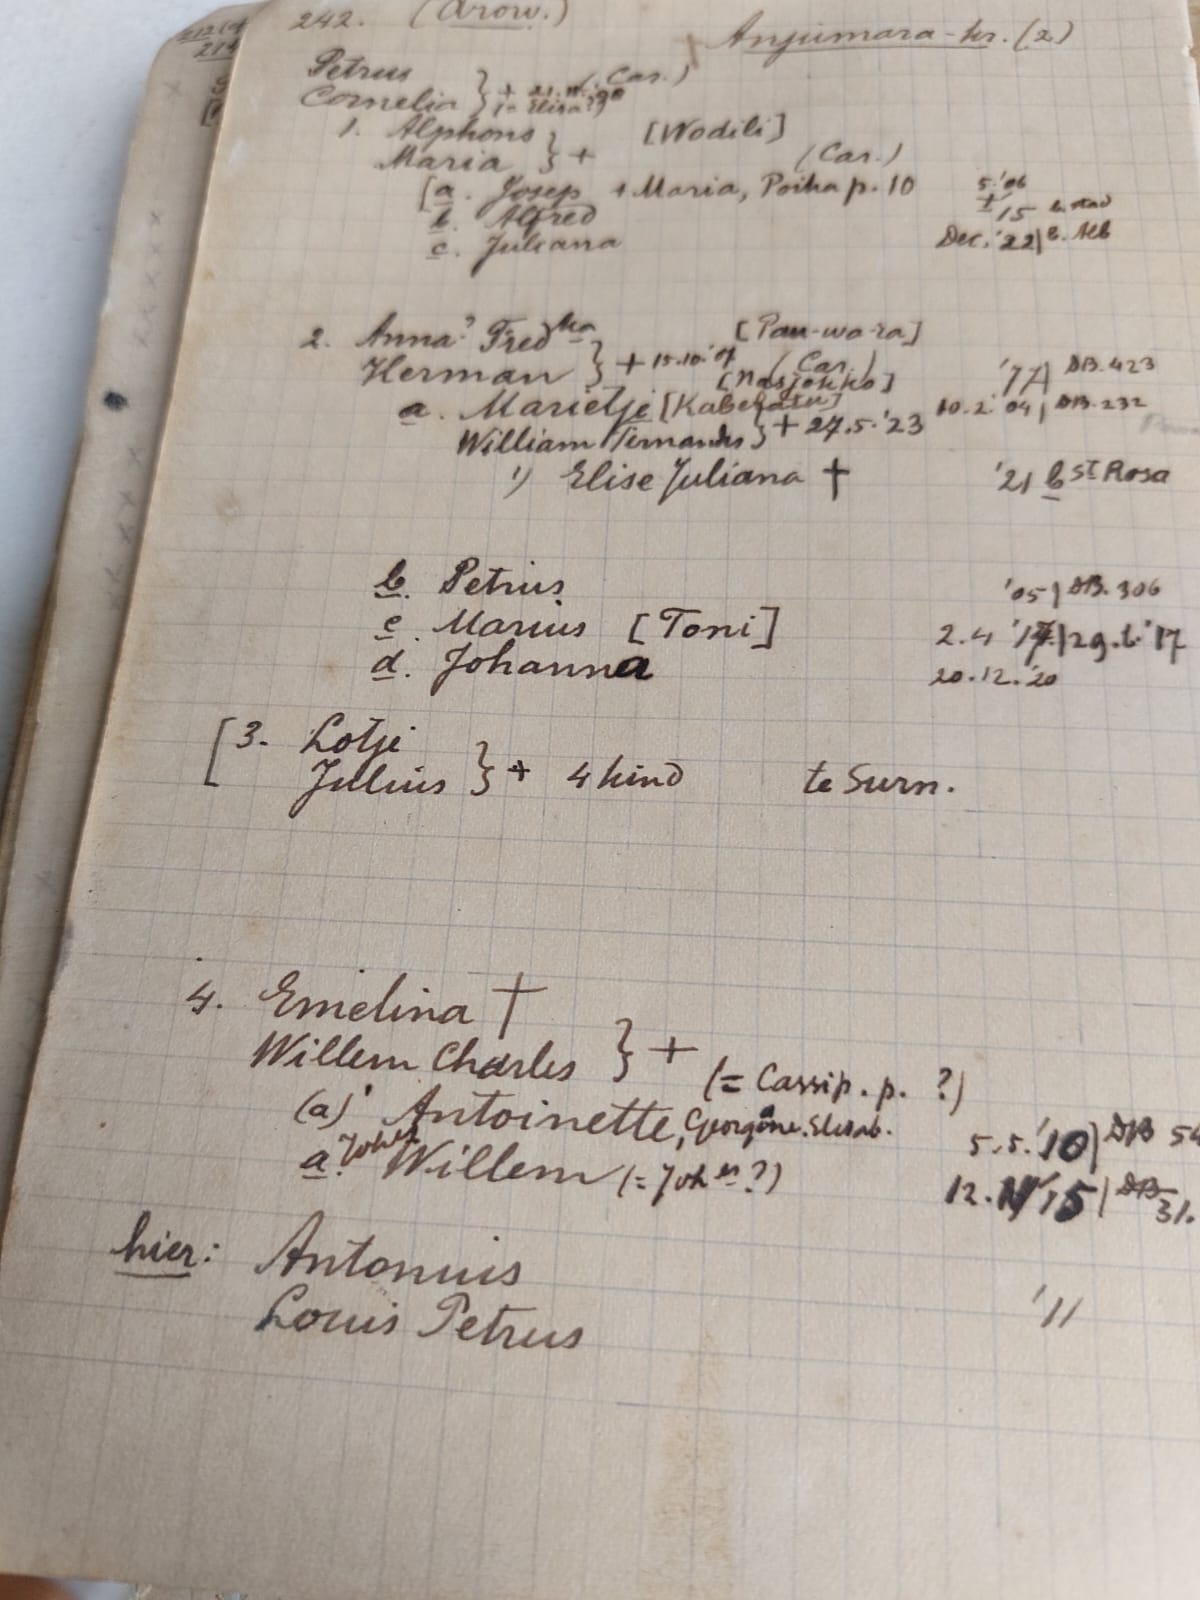 242. (Arow.) Anjumara-kr. (2)
Petrus
Cornelia } + (Car.)
(= Elisa?)
1. Alphons [Wodili]
Maria } + (Car.)
[a. Josep + Maria, Poika p. 10 5.'06
b. Alfred + '15
c. Juliana Dec. '22| b. Alb
2. Anna? Fred ka [Pau-wa-ra]
Herman } + 15.10.'07 (Car.) '77| DB. 423
a. Marietje 10.2.'04| DB. 232
William Fernandes } + 27.5.'23
1) Elise Juliana † '21 b St Rosa
b. Petrus '05| DB. 306
c. Marius [Toni] 2.4 '17|29.6.'17
d. Johanna 20.12.'20
[3. Lotje
Julius } + 4 kind te Surn.
4. Emelina †
Willem Charles } + (= Cassip. p. ?)
(a) Antoinette, Elisab. 5.5.'10| DB 54
a. Johes Willem (= Joh es?) 12. '15| DB 31.
hier: Antonius
Louis Petrus '11